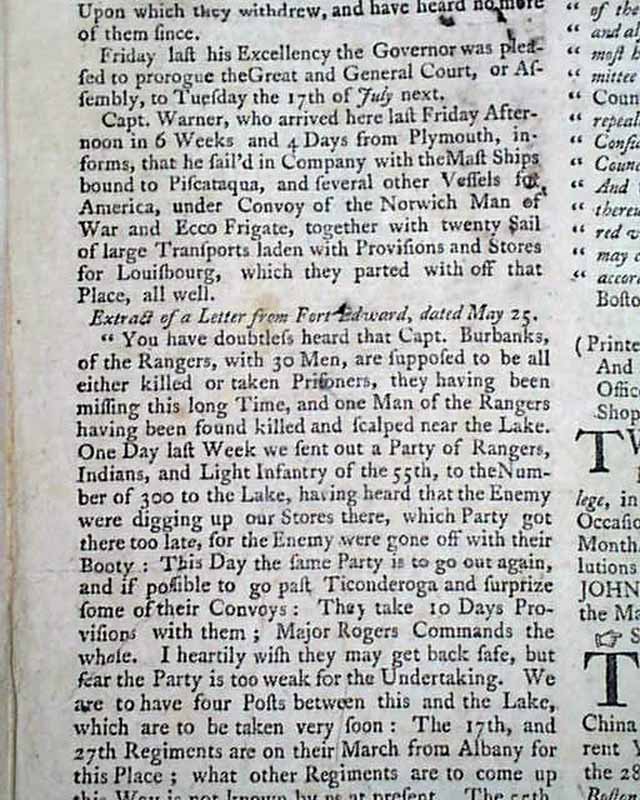 Upon which they withdrew, and have heard no more
of them ſince.
Friday laſt his Excellency the Governor was plea-
ſed to prorogue theGreat and General Court, or Aſ-
ſembly, to Tueſday the 17th of July next.
Capt. Warner, who arrived here laſt Friday After-
noon in 6 Weeks and 4 Days from Plymouth, in-
forms, that he ſail'd in Company with theMaſt Ships
bound to Piſcataqua, and ſeveral other Veſſels for
America, under Convoy of the Norwich Man of
War and Ecco Frigate, together with twenty Sail
of large Tranſports laden with Proviſions and Stores
for Louiſbourg, which they parted with off that
Place, all well.
Extract of a Letter from Fort Edward, dated May 25.
“ You have doubtleſs heard that Capt. Burbanks,
of the Rangers, with 30 Men, are ſuppoſed to be all
either killed or taken Priſoners, they having been
miſſing this long Time, and one Man of the Rangers
having been found killed and ſcalped near the Lake.
One Day laſt Week we ſent out a Party of Rangers,
Indians, and Light Infantry of the 55th, to theNum-
ber of 300 to the Lake, having heard that the Enemy
were digging up our Stores there, which Party got
there too late, for the Enemy were gone off with their
Booty : This Day the ſame Party is to go out again,
and if poſſible to go paſt Ticonderoga and ſurprize
ſome of their Convoys : They take 10 Days Pro-
viſions with them ; Major Rogers Commands the
whole. I heartily wiſh they may get back ſafe, but
fear the Party is too weak for the Undertaking. We
are to have four Poſts between this and the Lake,
which are to be taken very ſoon : The 17th, and
27th Regiments are on their March from Albany for
this Place ; what other Regiments are to come up
this Way is not known by us at preſent. The 55th
“ of the
“ and al
“ moſt h
“ mittee
“ Coun
“ repeal
“ Conſi
“ Counc
“ And
“ thereu
“ red
“ may c
“ accor
Boſto
(Printe
And
Office
Shop
TW
lege, in
Occaſio
Month
lutions
JOHN
the Ma
☞ S
T
China
rent Y
the 28
Boſton